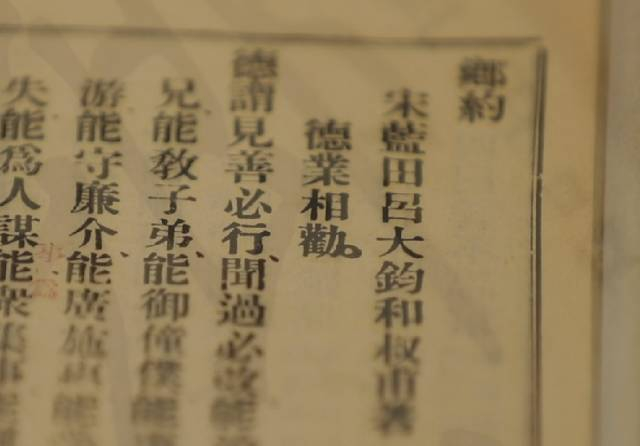 鄉約
宋藍田呂大鈞和叔甫著
德業相勸。
德謂見善必行、聞過必改、能
兄、能敎子弟、能御僮僕、能
游、能守廉介、能廣施惠、能
失、能爲人謀、能衆集事